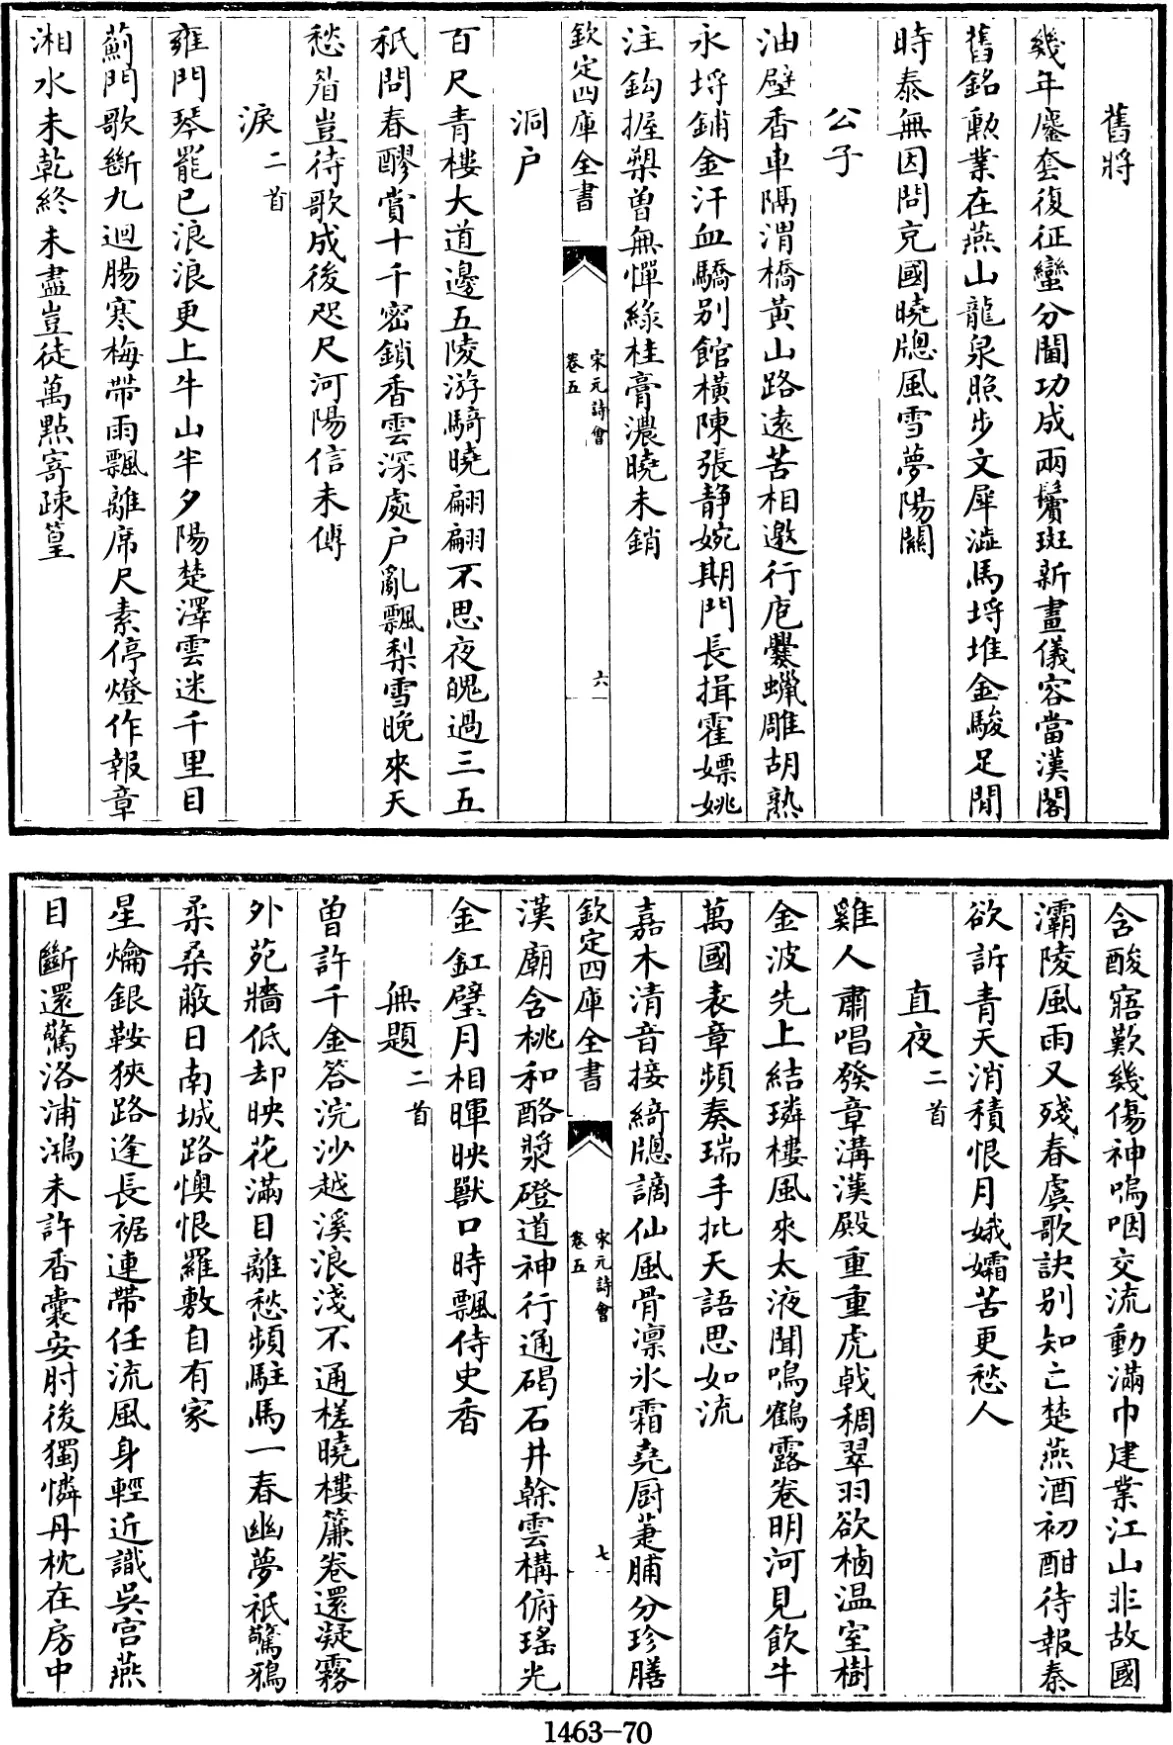 舊將
幾年鏖套復征蠻分閫功成兩鬢斑新畫儀容當漢閣
舊銘勲業在燕山龍泉照步文犀澁馬埒堆金駿足閒
時泰無因問充國曉牕風雪夢陽關
公子
油壁香車隔渭橋黃山路遠苦相邀行庖爨蠟雕胡熟
永埒鋪金汗血驕别館橫陳張靜婉期門長揖霍嫖姚
注鈎握槊曾無憚綠桂膏濃曉未銷
欽定四庫全書
宋元詩會
卷五
六
洞户
百尺青樓大道邊五陵游騎曉翩翩不思夜魄過三五
秖問春醪賞十千密鎖香雲深處户亂飄梨雪晚來天
愁眉豈待歌成後咫尺河陽信未傳
淚二首
雍門琴罷已浪浪更上牛山半夕陽楚澤雲迷千里目
薊門歌斷九迴腸寒梅帶雨飄離席尺素停燈作報章
湘水未乾終未盡豈徒萬點寄疎篁
含酸寤歎幾傷神嗚咽交流動滿巾建業江山非故國
灞陵風雨又殘春虞歌訣别知亡楚燕酒初酣待報秦
欲訴青天消積恨月娥孀苦更愁人
直夜二首
雞人肅唱發章溝漢殿重重虎戟稠翠羽欲栖温室樹
金波先上結璘樓風來太液聞鳴鶴露卷明河見飲牛
萬國表章頻奏瑞手批天語思如流
嘉木清音接綺牕謫仙風骨凜氷霜堯厨萐脯分珍膳
欽定四庫全書
宋元詩會
卷五
七
漢廟含桃和酪漿磴道神行通碣石井榦雲構俯瑤光
金釭璧月相暉映獸口時飄侍史香
無題二首
曾許千金答浣沙越溪浪淺不通槎曉樓簾卷還凝霧
外苑牆低却映花滿目離愁頻駐馬一春幽夢秖驚鴉
柔桑蔽日南城路懊恨羅敷自有家
星爚銀鞍狹路逢長裾連帶任流風身輕近識吳宫燕
目斷還驚洛浦鴻未許香囊安肘後獨憐丹枕在房中
1463-70